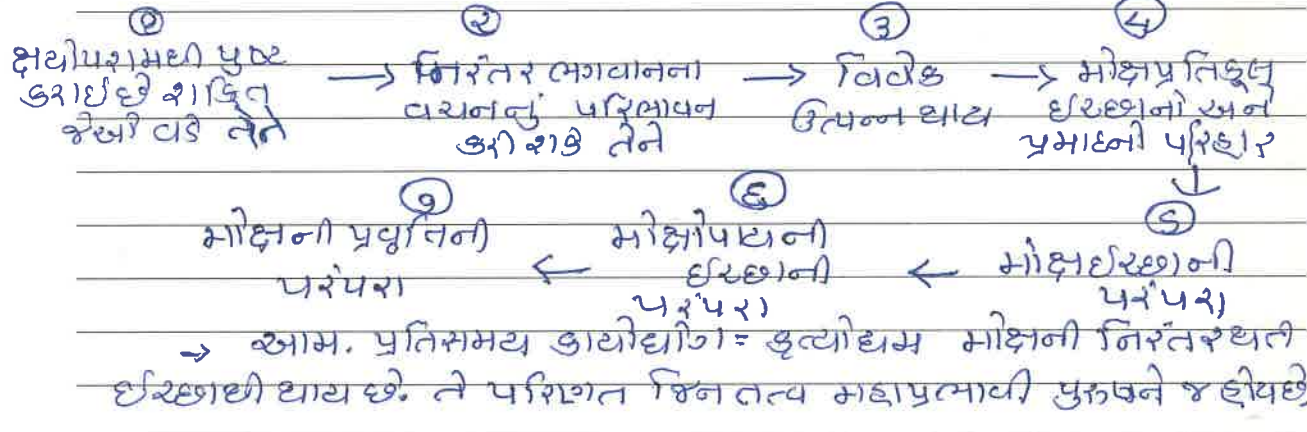 ૧
ક્ષયોપશમથી પુષ્ટ
કરાઈ છે શક્તિ
જેઓ વડે તેને
→
૨
નિરંતર ભગવાનના
વચનનું પરિભાવન
કરી શકે તેને
→
૩
વિવેક
ઉત્પન્ન થાય
→
૪
મોક્ષપ્રતિકૂલ
ઈચ્છાનો અને
પ્રમાદનો પરિહાર
↓
૫
મોક્ષઈચ્છાની
પરંપરા
←
૬
મોક્ષોપાયની
ઈચ્છાની
પરંપરા
←
૭
મોક્ષની પ્રવૃત્તિની
પરંપરા
→ આમ. પ્રતિસમય કાર્યોદ્યોગ = કૃત્યોદ્યમ મોક્ષની નિરંતર થતી
ઈચ્છાથી થાય છે. તે પરિણત જિનતત્વ મહાપ્રભાવી પુરુષને જ હોય છે